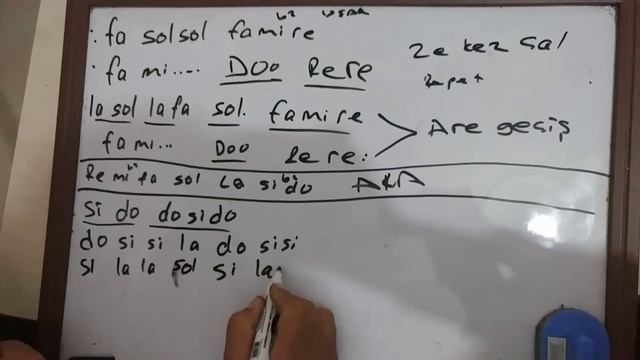 : fa sol sol fa mi re
. fa mi..... Doo Rere
2 e kez çal
la sol la fa sol. fa mi re
fa mi... Doo Re re:
Are geçiş
Re mi fa sol La si do AKA
Si do do si do
do si si la do si si
si la la sol si la